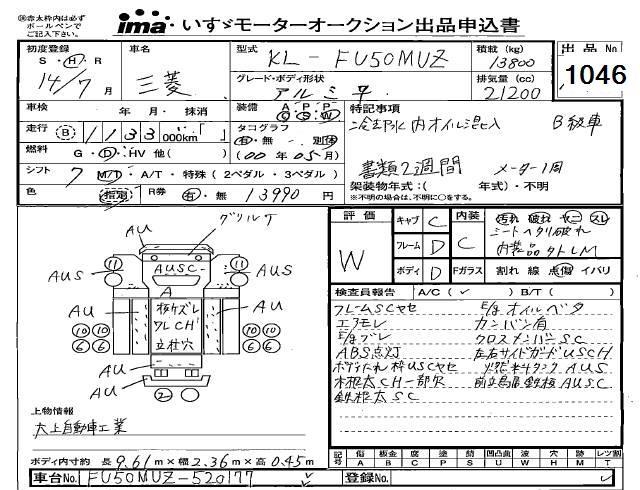 ※赤太枠内は必ず
ボールペンで
ご記入下さい。
ima いすゞモーターオークション出品申込書
初度登録 S・H・R 14年7月
車名 三菱
型式 KL-FU50MUZ
積載 (kg) 13800
出品No 1046
グレード・ボディ形状 アルミ平
排気量 (cc) 21200
車検 年 月・抹消
装備 A P P C S W
特記事項
走行 B 1133 000km
タコグラフ 有・無・別体
冷却水内オイル混入 B級車
燃料 G・D・HV 他( )
(00年05月)
シフト 7 M/T・A/T・特殊(2ペダル・3ペダル)
書類2週間 メーター1周
架装物年式:( 年式)・不明
色 指定 R券 有・無 13990円
※不明の場合は、不明に○をする。
グリルケ
AU
11 11
AUS AUSC AUS
A
AU 板ケズレ AU
ワレCH
立柱穴
10 10 10 10
6 6 6 6
AU
AU
2
上物情報
大上自動車工業
評価 W
キャブ C
フレーム D
ボディ D
内装 C
Fガラス
汚れ 破れ ヤニ スレ
シートヘタリ破れ
内装品タトLM
割れ 線 点傷 イバリ
検査員報告 A/C(✓) B/T( )
フレームSCヤセ E/gオイルベタ
エアモレ カンバン有
E/gブレ クロスメンバーSC
ABS点灯 左右サイドガードUSCH
ボディ下れ枠USCヤセ 燃料タンクAUS
木根太CH一部欠 前立鳥居鉄板AUSC
鉄根太SC
記号 傷A 板金B 腐C 塗P 錆S 凹凸曲U 波W 穴H 跡M レツ割T
ボディ内寸約 長9.61m×幅2.36m×高0.45m
車台No. FU50MUZ-520177
登録No. ✓